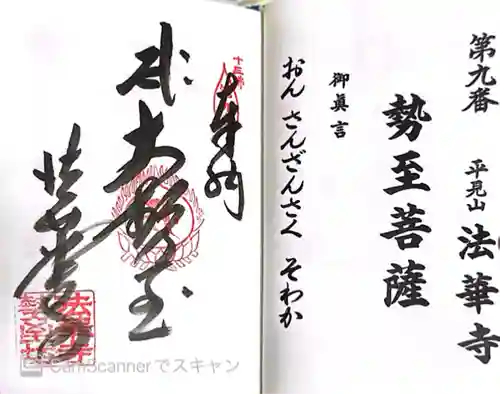 第九番
平見山 法華寺
勢至菩薩
御眞言
おん さんざんさく そわか
奉拝
大勢至
法華寺
CamScannerでスキャン